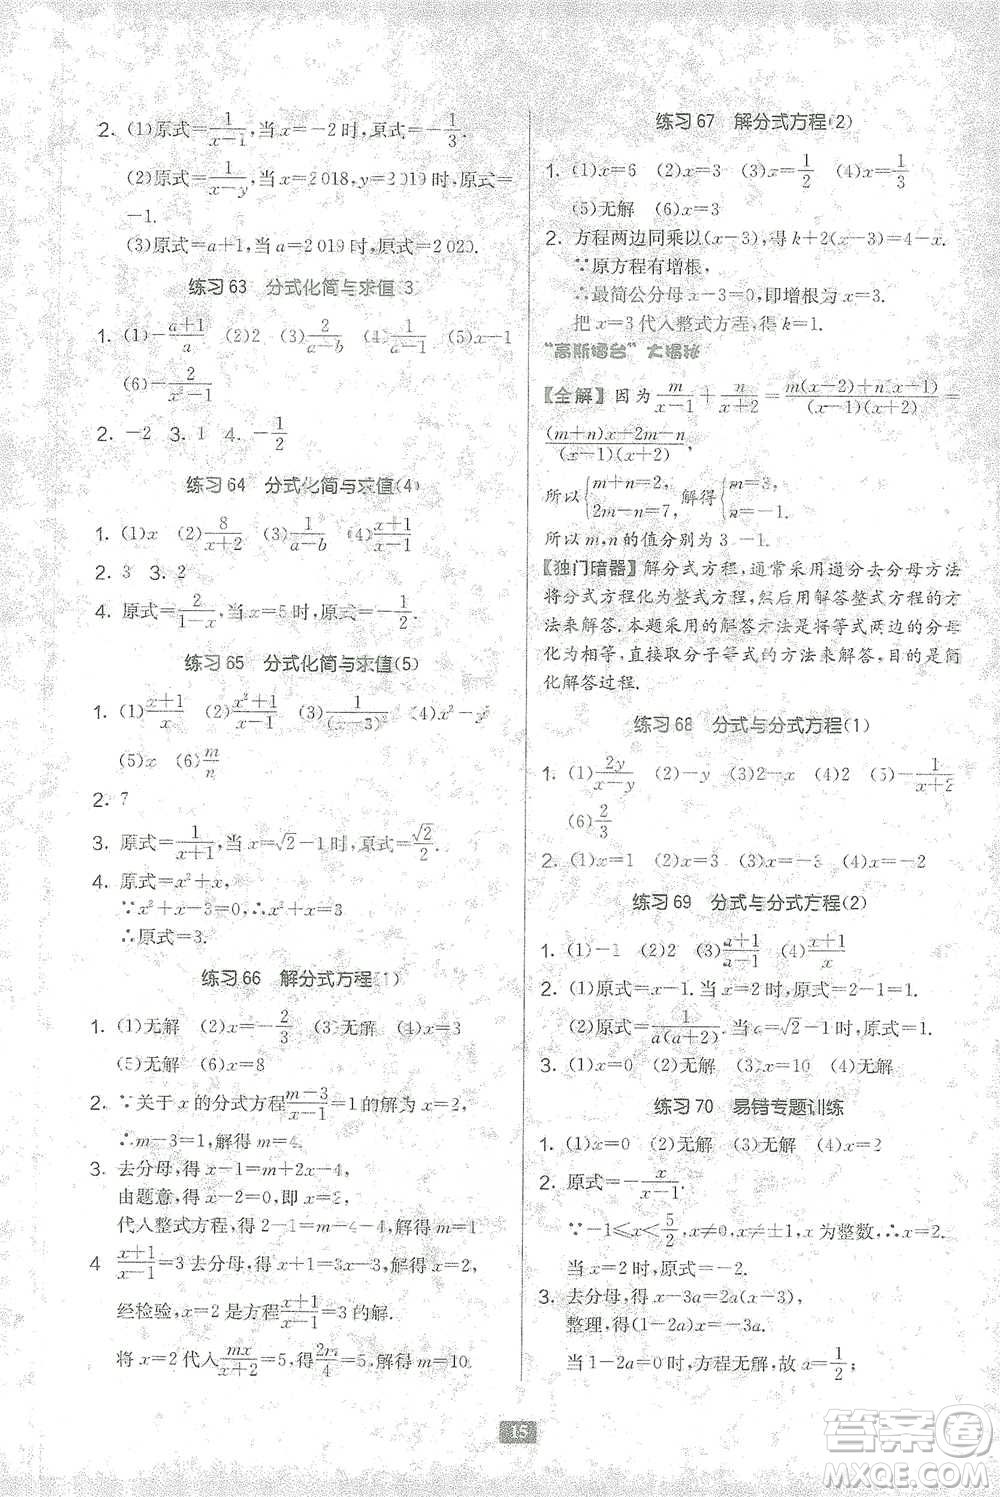 2. (1)原式=1/(x-1),当 x=-2 时,原式=-1/3.
(2)原式=1/(x-y),当 x=2 018,y=2 019 时,原式=
-1.
(3)原式=a+1,当 a=2 019 时,原式=2 020.
练习 63 分式化简与求值(3)
1. (1)-(a+1)/a (2)2 (3)2/(a-b) (4)1/(a-1) (5)x-1
(6)-2/(x²-1)
2. -2 3. 1 4. -1/2
练习 64 分式化简与求值(4)
1. (1)x (2)8/(x+2) (3)1/(a-b) (4)(x+1)/(x-1)
2. 3 3. 2
4. 原式=2/(1-x),当 x=5 时,原式=-1/2.
练习 65 分式化简与求值(5)
1. (1)(x+1)/x (2)(x²+1)/(x-1) (3)1/(x-3)² (4)x²-x
(5)x (6)m/n
2. 7
3. 原式=1/(x+1),当 x=√2-1 时,原式=√2/2.
4. 原式=x²+x,
∵x²+x-3=0,∴x²+x=3
∴原式=3.
练习 66 解分式方程(1)
1. (1)无解 (2)x=-2/3 (3)无解 (4)x=3
(5)无解 (6)x=8
2. ∵关于 x 的分式方程(m-3)/(x-1)=1 的解为 x=2,
∴m-3=1,解得 m=4.
3. 去分母,得 x-1=m+2x-4,
由题意,得 x-2=0,即 x=2,
代入整式方程,得 2-1=m+4-4,解得 m=1.
4 (x+1)/(x-1)=3 去分母,得 x+1=3x-3,解得 x=2,
经检验,x=2 是方程(x+1)/(x-1)=3 的解.
将 x=2 代入mx/(x+2)=5,得2m/4=5,解得 m=10.
练习 67 解分式方程(2)
1. (1)x=6 (2)x=3 (3)x=1/2 (4)x=1/3
(5)无解 (6)x=3
2. 方程两边同乘以(x-3),得 k+2(x-3)=4-x.
∵原方程有增根,
∴最简公分母 x-3=0,即增根为 x=3.
把 x=3 代入整式方程,得 k=1.
“高斯擂台”大揭秘
【全解】因为 m/(x-1)+n/(x+2)=(m(x-2)+n(x-1))/((x-1)(x+2))=
((m+n)x+2m-n)/((x-1)(x+2)),
所以{m+n=2, 2m-n=7, 解得{m=3, n=-1.
所以 m,n 的值分别为 3,-1.
【独门暗器】解分式方程,通常采用通分去分母方法
将分式方程化为整式方程,然后用解答整式方程的方
法来解答.本题采用的解答方法是将等式两边的分母
化为相等,直接取分子等式的方法来解答,目的是简
化解答过程.
练习 68 分式与分式方程(1)
1. (1)2y/(x-y) (2)-y (3)2x (4)2 (5)-1/(x+2)
(6)2/3
2. (1)x=1 (2)x=3 (3)x=-3 (4)x=-2
练习 69 分式与分式方程(2)
1. (1)-1 (2)2 (3)(a+1)/(a-1) (4)(x+1)/x
2. (1)原式=x-1.当 x=2 时,原式=1.
(2)原式=1/(a(a+2)).当 a=√2-1 时,原式=1.
3. (1)x=0 (2)无解 (3)x=10 (4)无解
练习 70 易错专题训练
1. (1)x=0 (2)无解 (3)无解 (4)x=2
2. 原式=-x/(x-1).
∵-1≤x<5/2,x≠0,x≠±1,x 为整数,∴x=2.
当 x=2 时,原式=-2.
3. 去分母,得 x-3a=2a(x-3),
整理,得(1-2a)x=-3a.
当 1-2a=0 时,方程无解,故 a=1/2;
15
答案卷
MXQE.COM